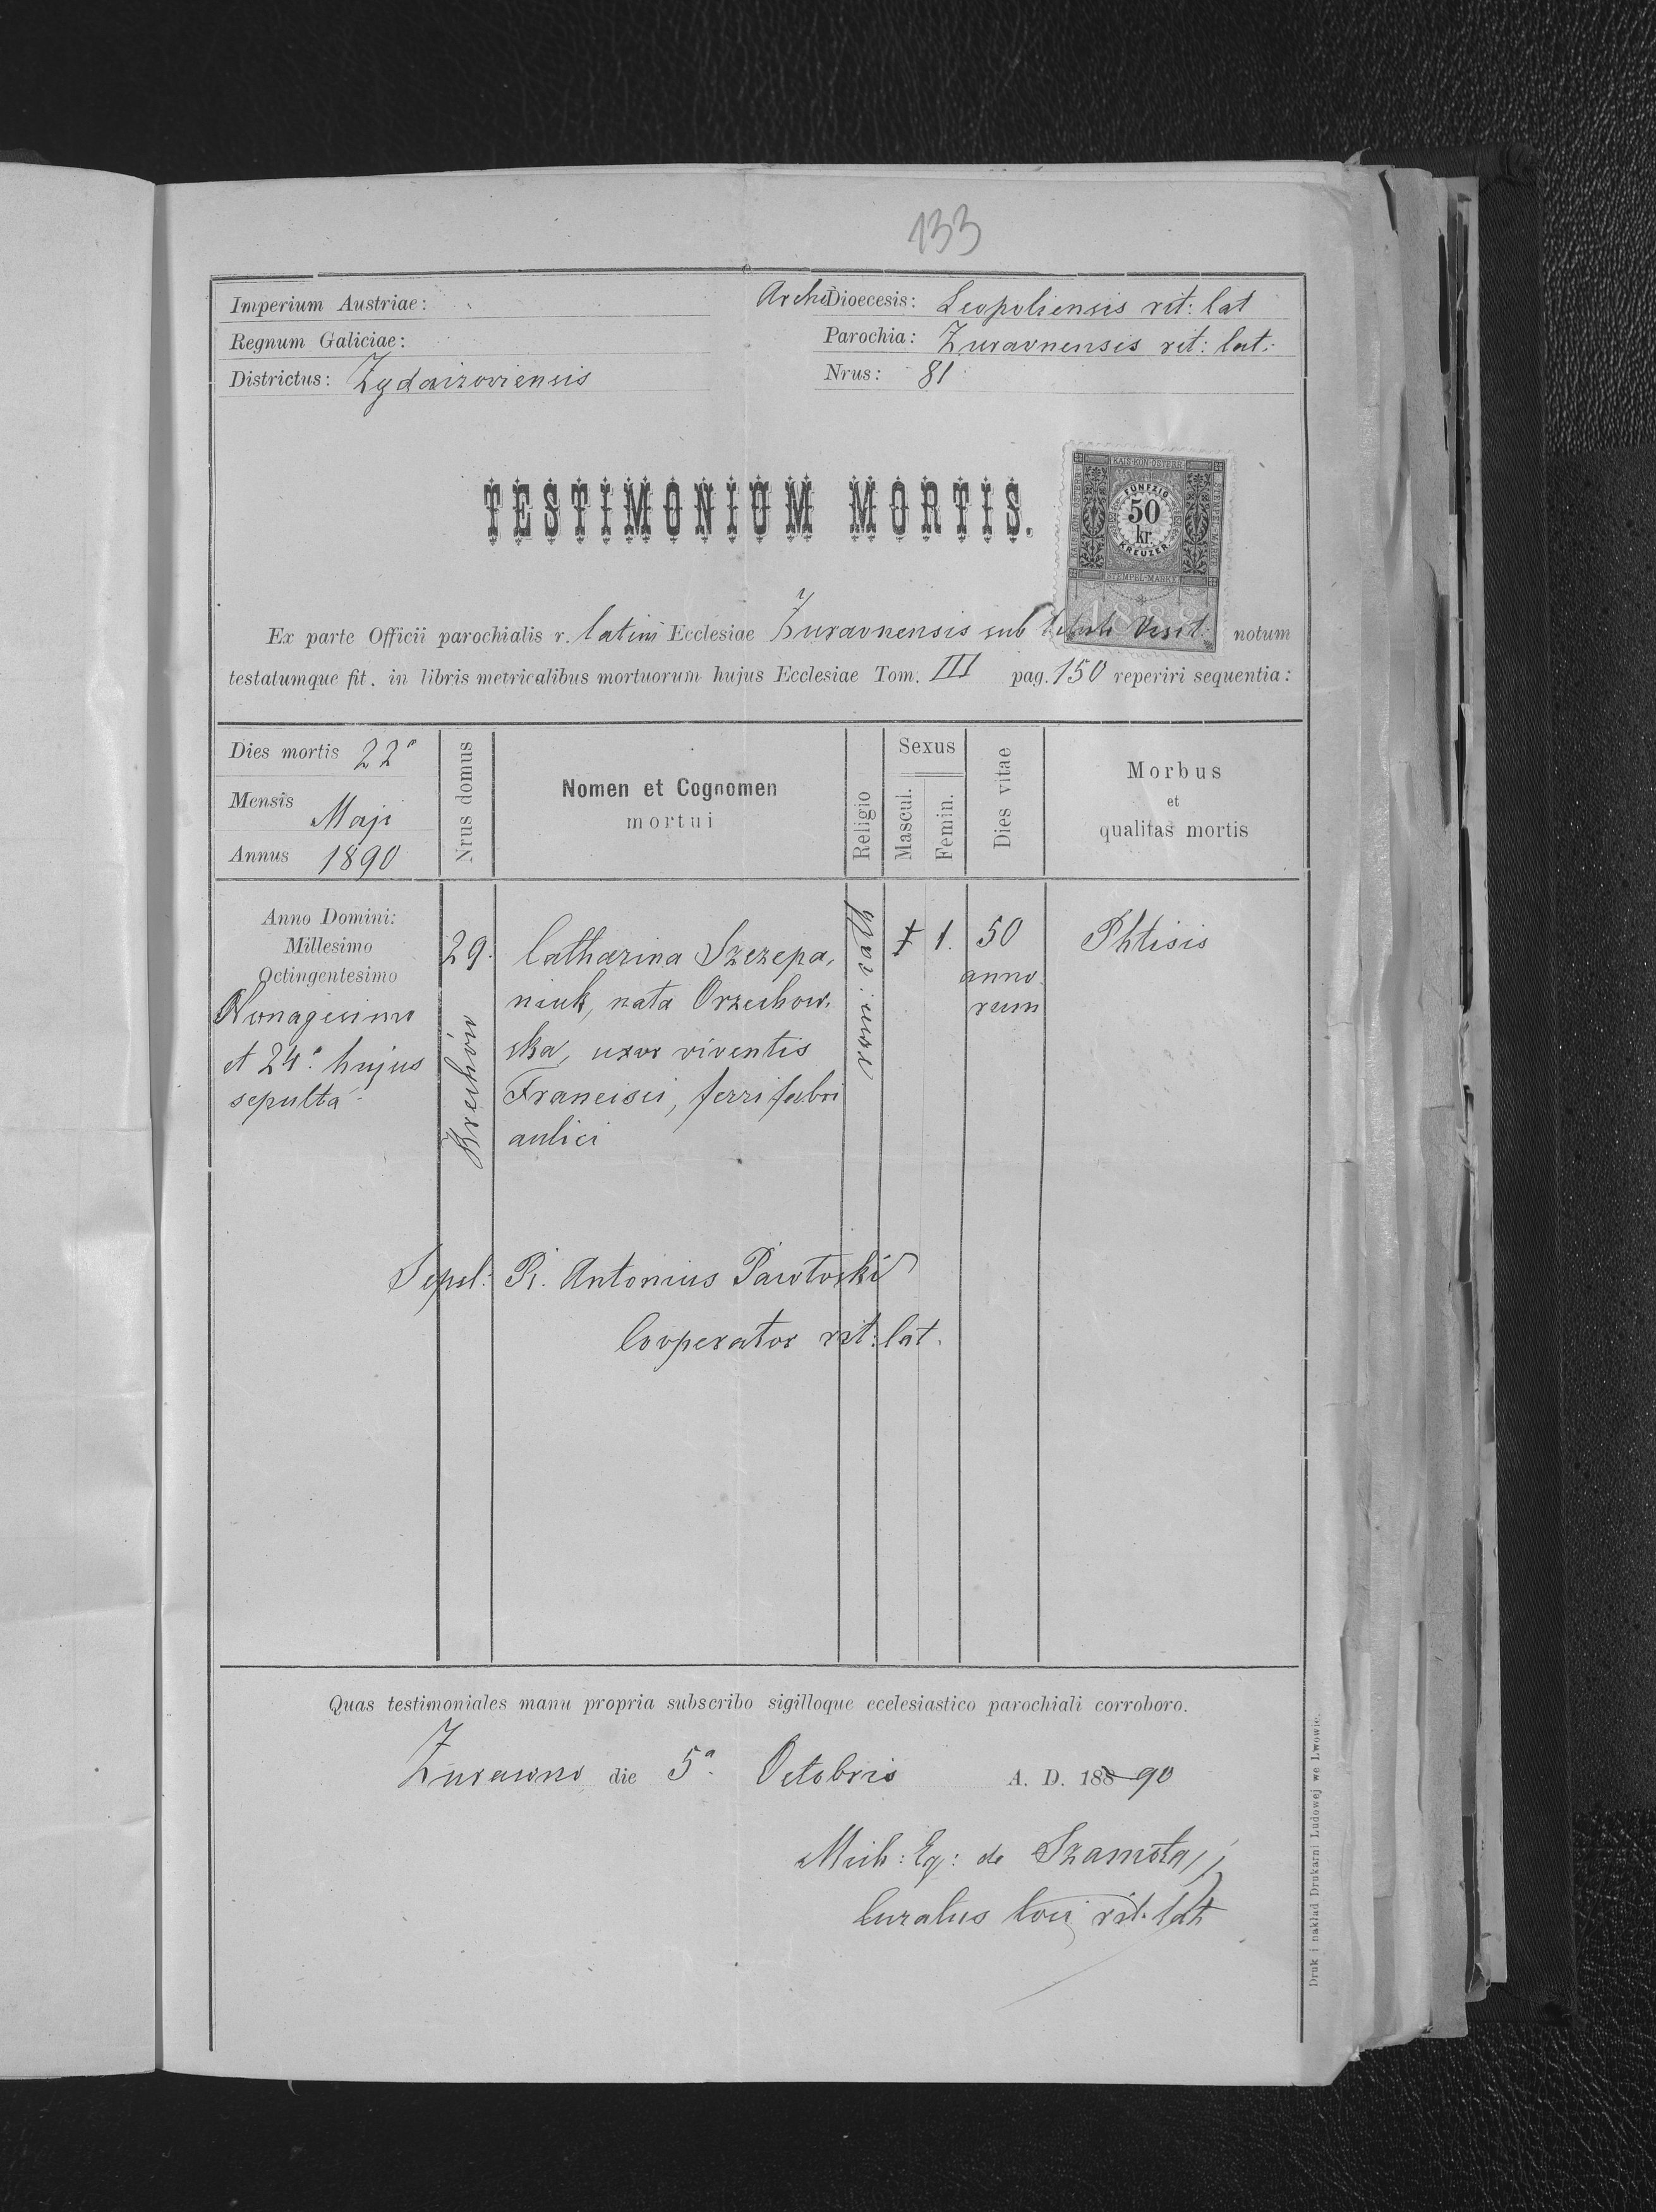 133
Imperium Austriae:
Regnum Galiciae:
Districtus: Zydaczoviensis
ArchiDioecesis: Leopoliensis rit: lat
Parochia: Zuravnensis rit: lat:
Nrus: 81
TESTIMONIUM MORTIS.
KAIS·KÖN·ÖSTERR
FÜNFZIG
50
kr.
KREUZER
STEMPEL-MARKE
1888
Ex parte Officii parochialis r. latini Ecclesiae Zuravnensis sub titulo Visit: notum
testatumque fit, in libris metricalibus mortuorum hujus Ecclesiae Tom. III pag. 150 reperiri sequentia:
Dies mortis 22ª
Mensis Maji
Annus 1890
Nrus domus
Nomen et Cognomen
mortui
Religio
Sexus
Mascul.
Femin.
Dies vitae
Morbus
et
qualitas mortis
Anno Domini:
Millesimo
Octingentesimo
Nonagesimo
et 24ª hujus
sepulta
29.
Krechów
Catharina Szczepa,
niuk, nata Orzechow,
ska, uxor viventis
Francisci, ferri fabri
aulici
rom:
1.
50
anno
rum
Phtisis
Sepel: Pr. Antonius Pawłoski
Cooperator rit: lat.
Quas testimoniales manu propria subscribo sigilloque ecclesiastico parochiali corroboro.
Zurawno die 5ª Octobris A. D. 188 90
Mich: Eq: de Szamota
Curatus loci rit. lat
Druk i nakład Drukarni Ludowej we Lwowie.